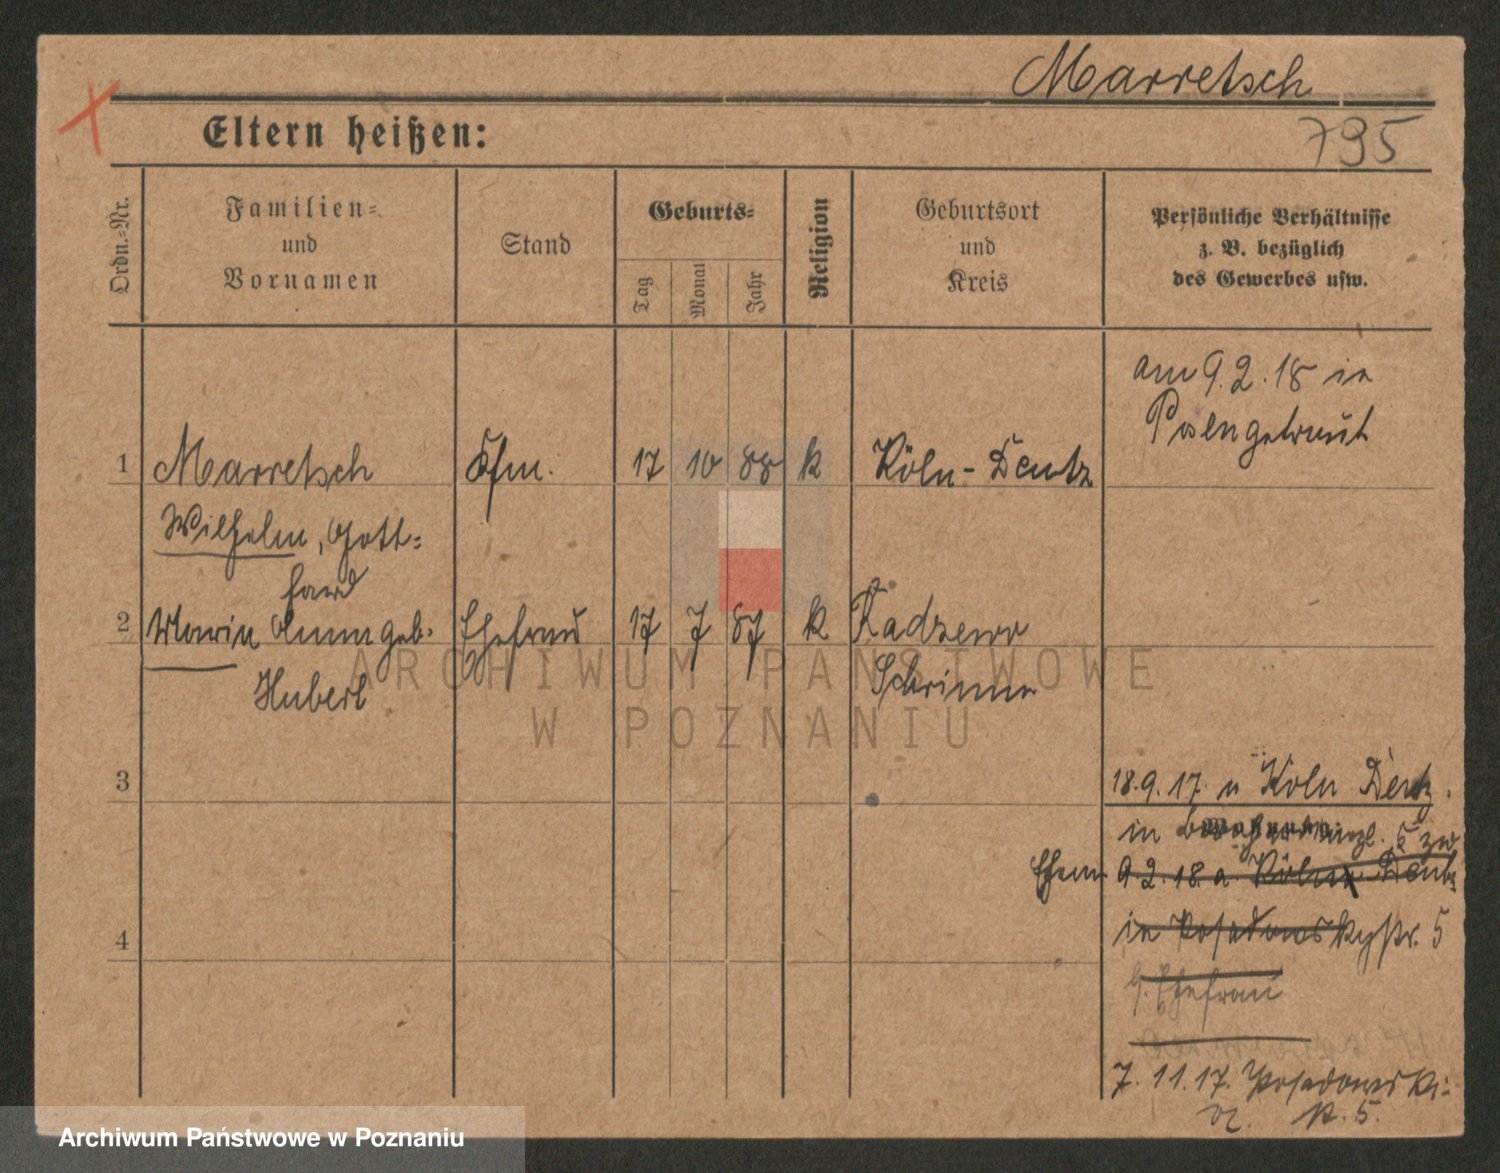 Marretsch
795
Eltern heißen:
Ordn.-Nr.
Familien-
und
Vornamen
Stand
Geburts-
Tag
Monat
Jahr
Religion
Geburtsort
und
Kreis
Persönliche Verhältnisse
z. B. bezüglich
des Gewerbes usw.
am 9.2.18 in
Posen getraut
1 Marretsch Kfm. 17 10 88 k Köln-Deutz
Wilhelm, Gott-
hard
2 Maria Anna geb. Ehefrau 17 7 87 k Radzewo
Hubert Schrimm
3
18.9.17. Köln Deutz.
in 5
9.2.18. a. Köln Deutz
4
in Posadowskystr. 5
Ehefrau
7.11.17. Posadowski-
st. 5.
ARCHIWUM PAŃSTWOWE
W POZNANIU
Archiwum Państwowe w Poznaniu